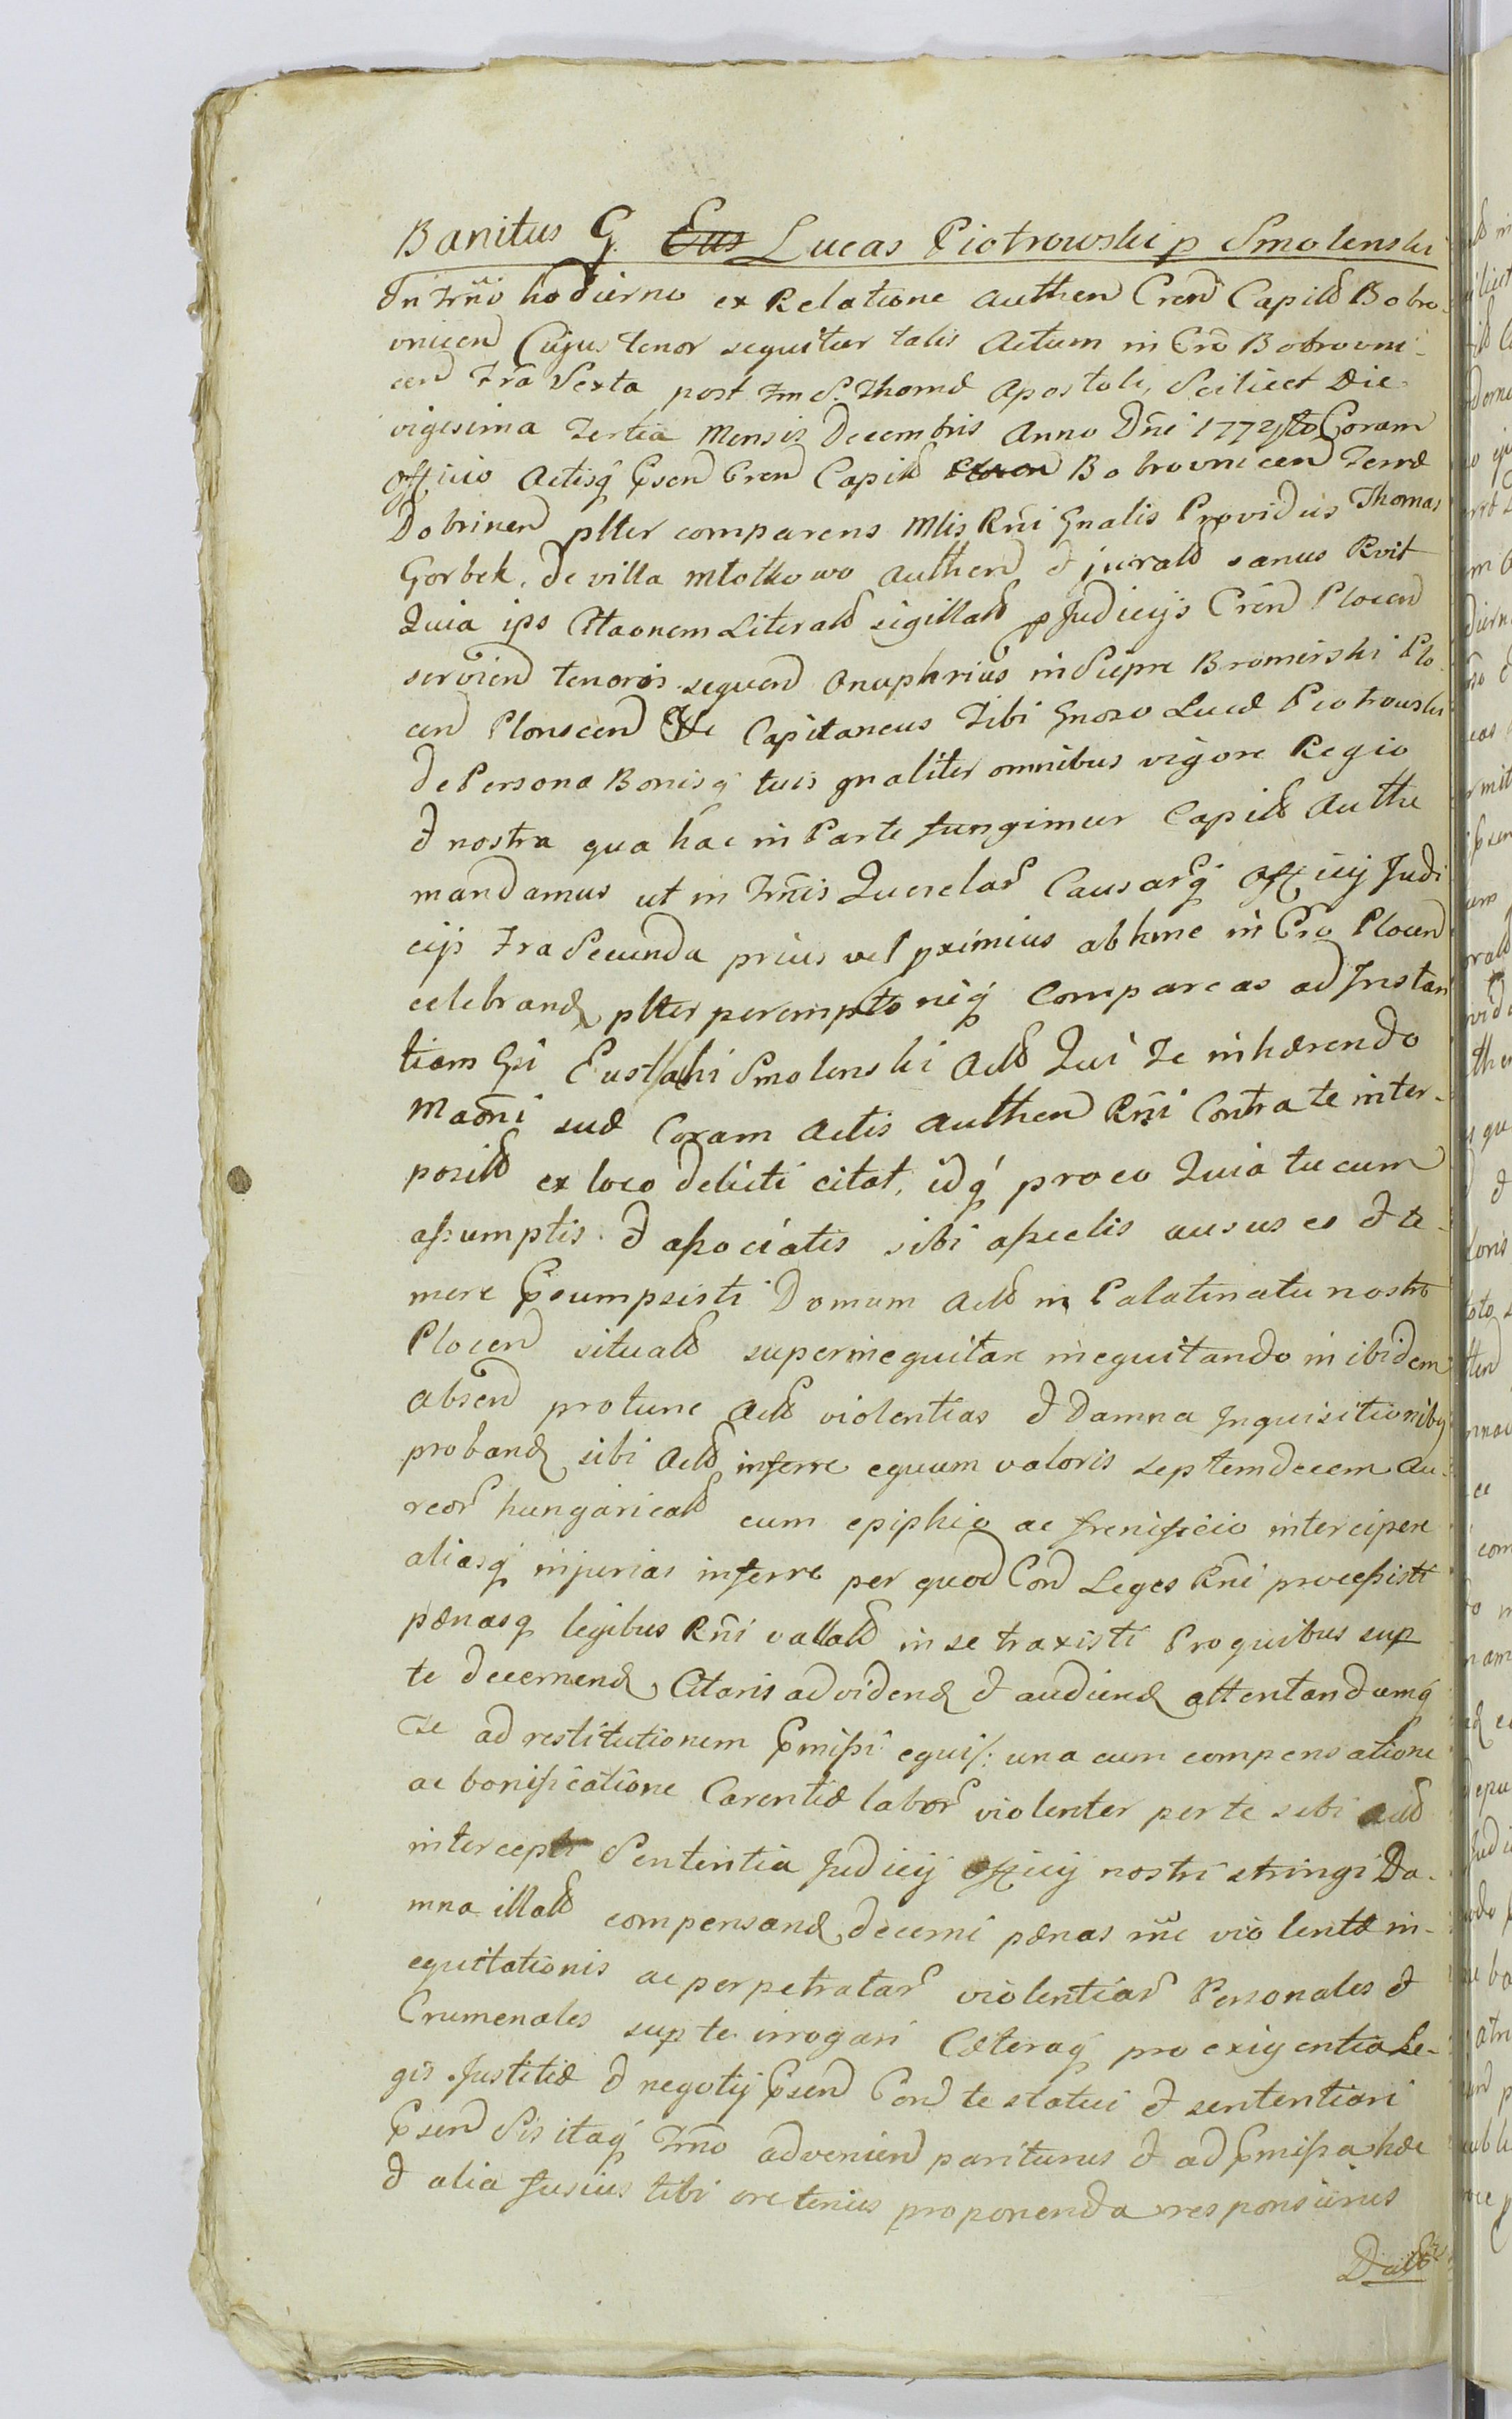 Banitus G. Eus Lucas Piotrowski p Smolenski
In Trño hodierno ex Relatione Authen Cren Capitl Bobro-
vnicen Cujus tenor sequitur talis Actum in Cro Bobrovni-
cen Fra Sexta post Fm S. Thomæ Apostoli, Scilicet Die
vigesima Tertia Mensis Decembris Anno Dñi 1772do Coram
Officio Actisq Psen Cren Capitl Bobrovnicen Terræ
Dobrinen plter comparens Mlis Rñi Gnalis Providus Thomas
Gorbek de villa Mlotkowo Authen & jurat sanus Rvit
Quia ips Citaonem Literat sigillat p Judicijs Cren Plocen
servien tenoris sequen Onuphrius in Siepre Bromirski Plo-
cen Plonscen Capitaneus Tibi Gnoso Lucæ Piotrowski
de Persona Bonisq tuis gnaliter omnibus vigore Regio
& nostra qua hac in Parte fungimur Capitl Autthe
mandamus ut in Trñis Querelar Causarq Officij Judi-
cijs Fra Secunda prius vel pximius abhinc in Cro Plocen
celebrand plter peremptoneq compareas ad Instan-
tiam Gsi Eustachi Smolenski Act Qui Te inhærendo
Maoni suæ Coram Actis Authen Rñi Contra te inter-
posit ex loco delicti citat, idq pro eo Quia tu cum
assumptis & associatis sibi asseclis ausus es & te-
mere Psumpsisti Domum Act in Palatinatu nostro
Plocen situat superinequitare inequitando in ibidem
absen protunc Act violentias & Damna Inquisitionibq
proband sibi Act inferre equum valoris septemdecem Au-
reor hungarical cum epiphio ac frenificio intercipere
aliasq injurias inferre per quod Con Leges Rñi processisti
pænasq legibus Rñi vallat in se traxisti Pro quibus sup
te decernend Citaris ad vidend & audiend attentandumq
Te ad restitutionem Pmissi equi s: una cum compensatione
ac bonificatione Carentiæ labor violenter per te sibi Act
intercepti Sententia Judicij Officij nostri stringi Da-
mna illat compensand decerni pænas violentæ in-
equitationis ac perpetratar violentiar Personales &
Crumenales sup te irrogari Cæteraq pro exigentia Le-
gis Justitiæ & negotij Psen Con te statui & sententiari
Psen Sis itaq Trño advenien pariturus & ad Pmissa hæc
& alia fusius tibi oretenus proponenda responsurus
Dat